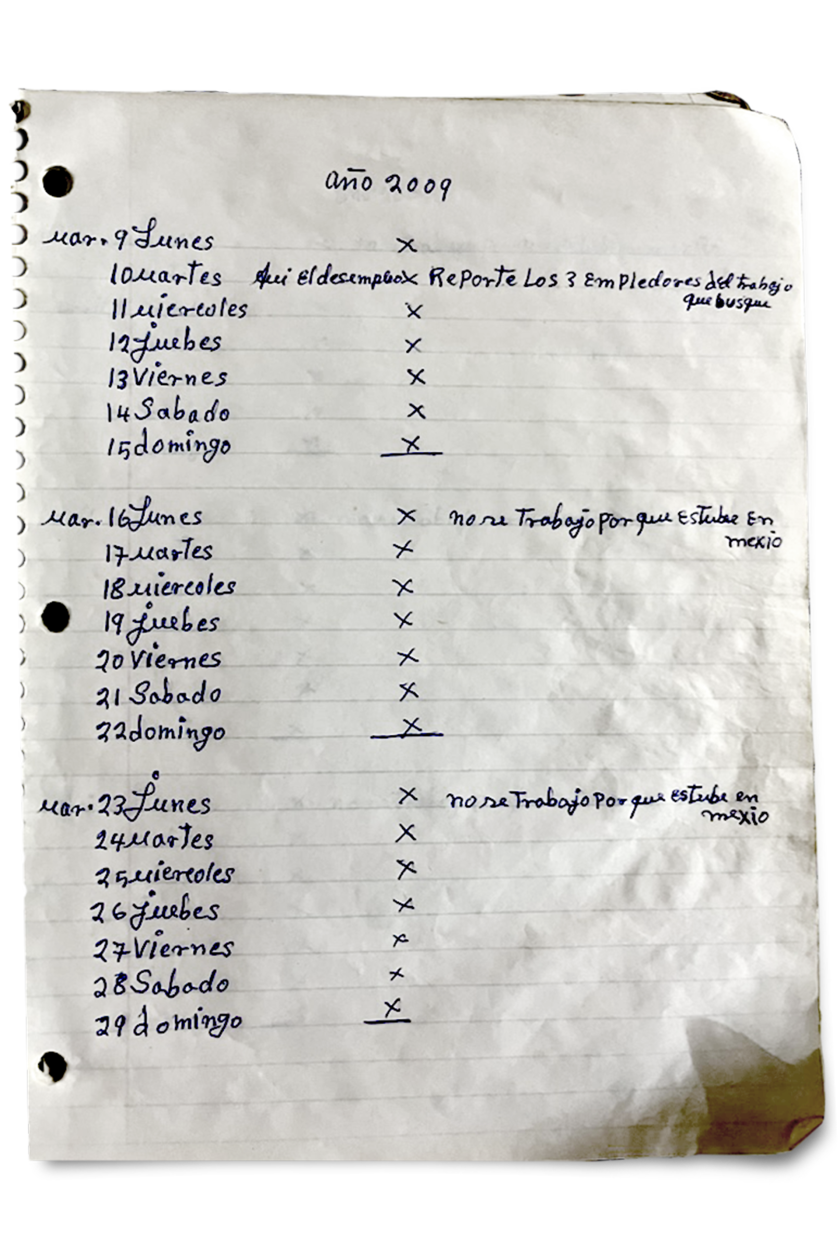 año 2009
Mar. 9 Lunes x
10 Martes Aui El desempleo x RePorte Los 3 EmPledores del trabajo
que busque
11 Miercoles x
12 Juebes x
13 Viernes x
14 Sabado x
15 domingo x
Mar. 16 Lunes x no se Trabajo Por que Estube En
mexio
17 Martes x
18 Miercoles x
19 Juebes x
20 Viernes x
21 Sabado x
22 domingo x
Mar. 23 Lunes x no se Trabajo Por que estube en
mexio
24 Martes x
25 Miercoles x
26 Juebes x
27 Viernes x
28 Sabado x
29 domingo x